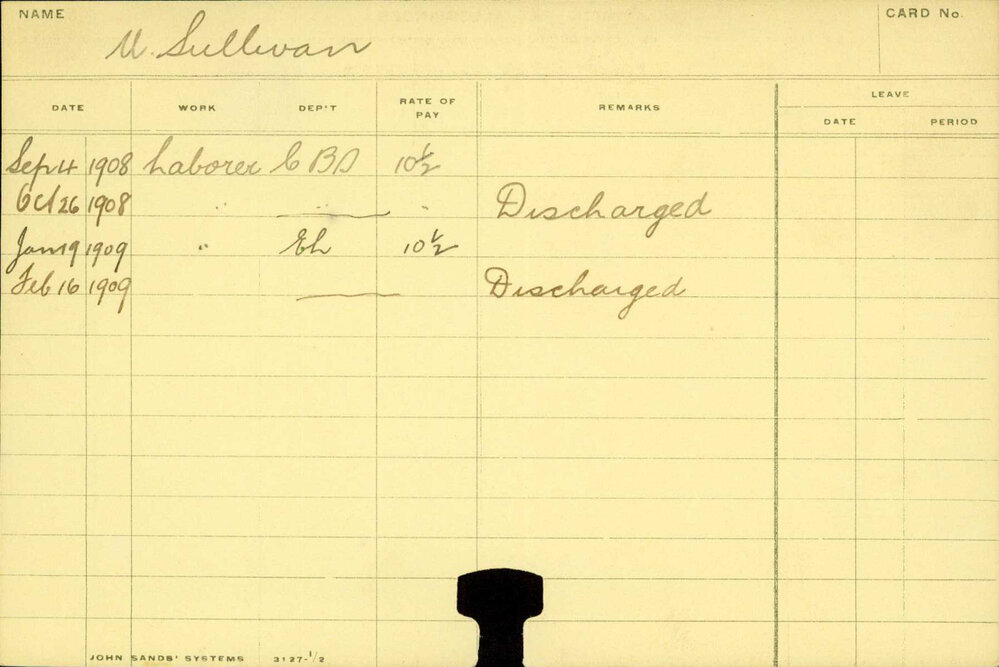 NAME
CARD No.
Sullivan
LEAVE
DATE WORK DEP'T RATE OF PAY REMARKS DATE PERIOD
Sep 4 1908 Laborer C B D 10½
Oct 26 1908 " " " Discharged
Jan 19 1909 " 10½
Feb 16 1909 Discharged
JOHN SANDS' SYSTEMS 3127-½